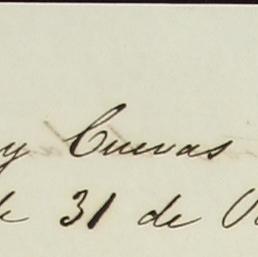 y Cuevas
de 31 de